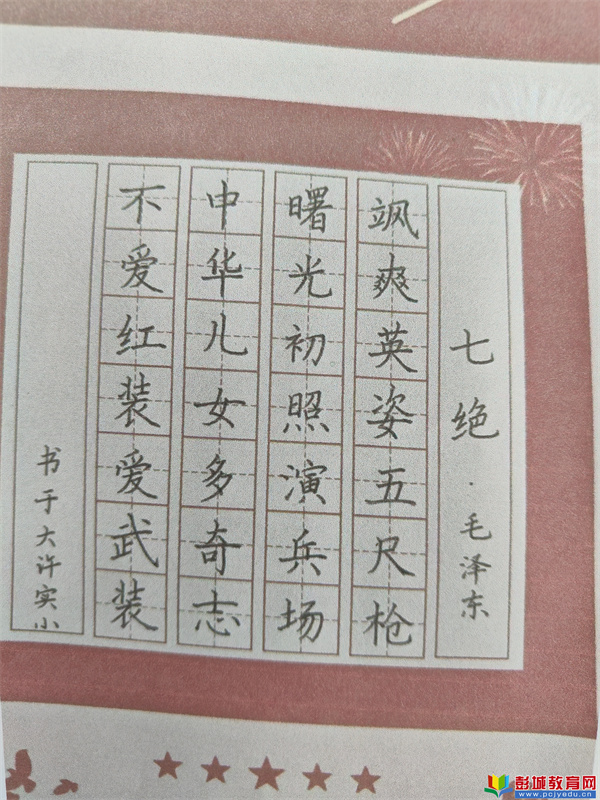 七绝·毛泽东
飒爽英姿五尺枪
曙光初照演兵场
中华儿女多奇志
不爱红装爱武装
书于大许实小
彭城教育网
www.pcjyedu.cn